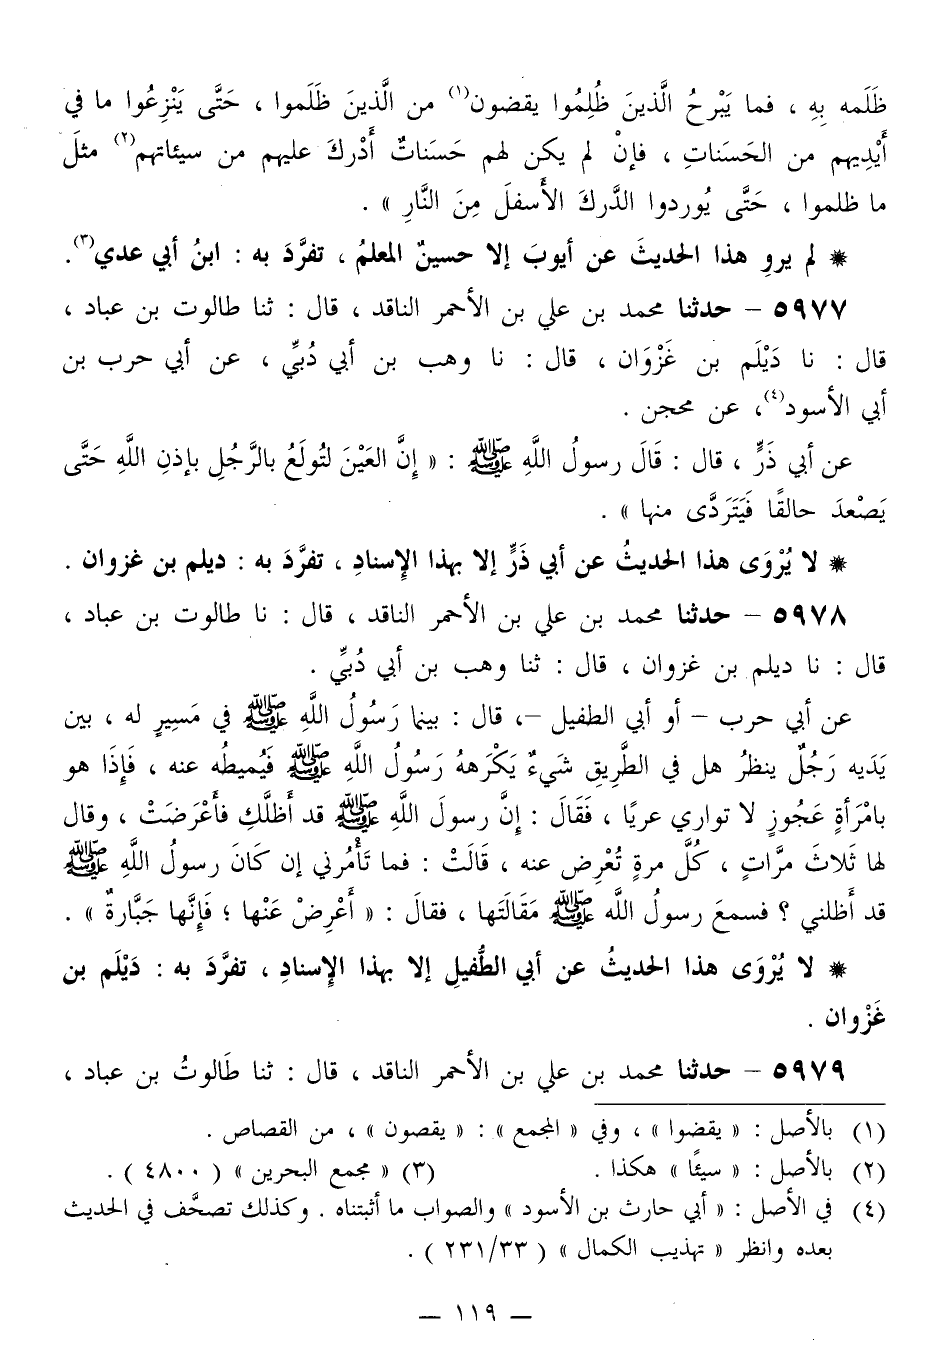 ظَلَمه بِهِ ، فما يَبْرحُ الَّذينَ ظُلِمُوا يقضون(١) من الَّذينَ ظَلَموا ، حَتَّى يَنْزِعُوا ما في
أَيْدِيهم من الحَسَناتِ ، فإنْ لم يكن لهم حَسَناتٌ أَدْركَ عليهم من سيئاتهم(٢) مثلَ
ما ظلموا ، حَتَّى يُوردوا الدَّركَ الأَسفلَ مِنَ النَّارِ » .
* لم يروِ هذا الحديثَ عن أيوبَ إلا حسينٌ المعلمُ ، تفرَّدَ به : ابنُ أبي عدي(٣).
٥٩٧٧ – حدثنا محمد بن علي بن الأحمر الناقد ، قال : ثنا طالوت بن عباد ،
قال : نا دَيْلَم بن غَزْوَان ، قال : نا وهب بن أبي دُبيِّ ، عن أبي حرب بن
أبي الأسود(٤)، عن محجن .
عن أبي ذَرٍّ ، قال : قَالَ رسولُ اللَّهِ ﷺ : « إِنَّ العَيْنَ لتُولَعُ بالرَّجُلِ بإذنِ اللَّهِ حَتَّى
يَصْعدَ حالقًا فَيَتَرَدَّى منها » .
* لا يُرْوَى هذا الحديثُ عن أبي ذَرٍّ إلا بهذا الإِسنادِ ، تفرَّدَ به : ديلم بن غزوان .
٥٩٧٨ – حدثنا محمد بن علي بن الأحمر الناقد ، قال : نا طالوت بن عباد ،
قال : نا ديلم بن غزوان ، قال : ثنا وهب بن أبي دُبيِّ .
عن أبي حرب – أو أبي الطفيل –، قال : بينما رَسُولُ اللَّهِ ﷺ في مَسِيرٍ له ، بين
يَدَيه رَجُلٌ ينظرُ هل في الطَّرِيقِ شَيءٌ يَكْرَههُ رَسُولُ اللَّهِ ﷺ فَيُميطُه عنه ، فَإِذَا هو
بامْرَأةٍ عَجُوزٍ لا تواري عريًا ، فَقَالَ : إِنَّ رسولَ اللَّهِ ﷺ قد أَظلَّكِ فأَعْرَضَتْ ، وقال
لها ثَلاثَ مرَّاتٍ ، كُلَّ مرةٍ تُعْرِض عنه ، قَالَتْ : فما تَأْمُرني إن كَانَ رسولُ اللَّهِ ﷺ
قد أظلني ؟ فسمعَ رسولُ اللَّه ﷺ مَقَالَتَها ، فقالَ : « أَعْرِضْ عَنْها ؛ فَإِنَّها جَبَّارةٌ » .
* لا يُرْوَى هذا الحديثُ عن أبي الطُّفيلِ إلا بهذا الإِسنادِ ، تفرَّدَ به : دَيْلَم بن
غَزْوان .
٥٩٧٩ – حدثنا محمد بن علي بن الأحمر الناقد ، قال : ثنا طَالوتُ بن عباد ،
(١) بالأصل : « يقضوا » ، وفي « المجمع » : « يقصون » ، من القصاص .
(٢) بالأصل : « سيئًا » هكذا . (٣) « مجمع البحرين » ( ٤٨٠٠ ) .
(٤) في الأصل : « أبي حارث بن الأسود » والصواب ما أثبتناه . وكذلك تصحَّف في الحديث
بعده وانظر « تهذيب الكمال » ( ٢٣١/٣٣ ) .
– ١١٩ –